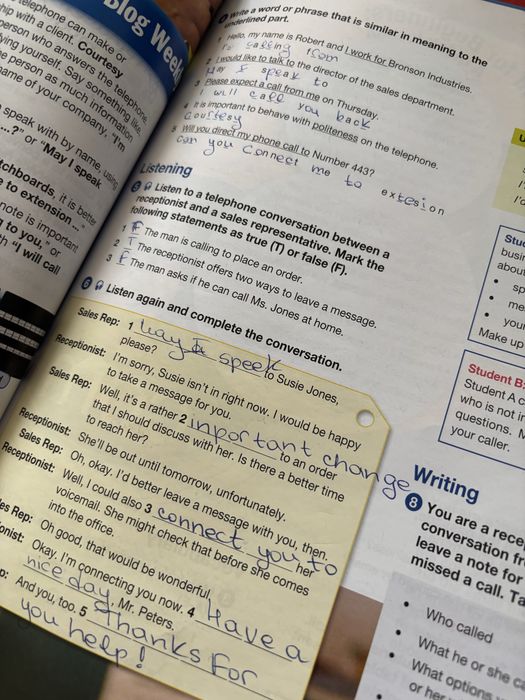 telephone can make or
hip with a client. Courtesy
person who answers the telephone
ying yourself. Say something like,
e person as much information
ame of your company, "I'm
speak with by name, using
...?" or "May I speak
tchboards, it is better
to extension ..."
note is important
to you," or
"I will call
Blog Week
Write a word or phrase that is similar in meaning to the
underlined part.
1 Hello, my name is Robert and I work for Bronson Industries.
I'm calling from
2 I would like to talk to the director of the sales department.
May I speak to
3 Please expect a call from me on Thursday.
I will call you back
4 It is important to behave with politeness on the telephone.
Courtesy
5 Will you direct my phone call to Number 443?
can you connect me to extesion
Listening
5 Listen to a telephone conversation between a
receptionist and a sales representative. Mark the
following statements as true (T) or false (F).
1 F The man is calling to place an order.
2 T The receptionist offers two ways to leave a message.
3 F The man asks if he can call Ms. Jones at home.
6 Listen again and complete the conversation.
Sales Rep: 1 may I speek to Susie Jones,
please?
Receptionist: I'm sorry, Susie isn't in right now. I would be happy
to take a message for you.
Sales Rep: Well, it's a rather 2 inportant change to an order
that I should discuss with her. Is there a better time
to reach her?
Receptionist: She'll be out until tomorrow, unfortunately.
Sales Rep: Oh, okay. I'd better leave a message with you, then.
Receptionist: Well, I could also 3 connect you to her
voicemail. She might check that before she comes
into the office.
es Rep: Oh good, that would be wonderful.
onist: Okay. I'm connecting you now. 4 Have a
nice day, Mr. Peters.
p: And you, too. 5 Thanks for
you help!
Stu
busin
abou
sp
me
you
Make up
Student B:
Student A c
who is not i
questions. M
your caller.
Writing
8 You are a rece
conversation fr
leave a note for
missed a call. Ta
• Who called
• What he or she ca
• What options
or her